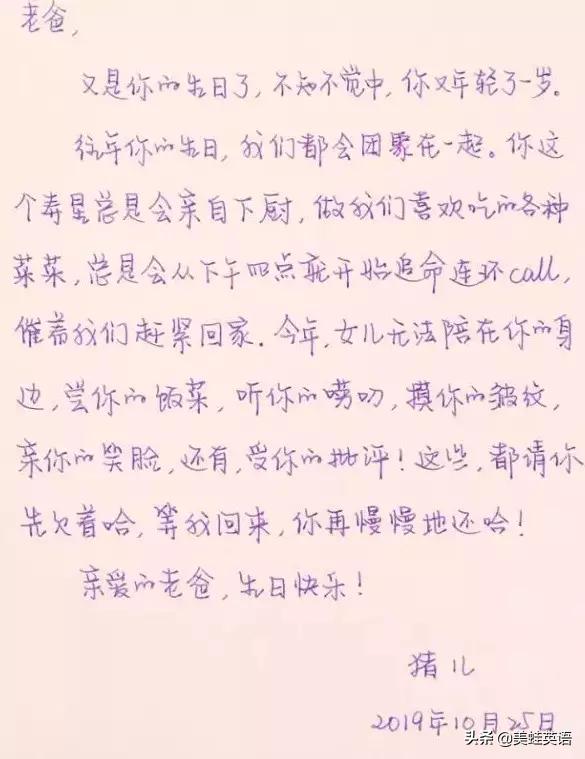 老爸，
又是你的生日了，不知不觉中，你又年轻了一岁。
往年你的生日，我们都会团聚在一起。你这
个寿星总是会亲自下厨，做我们喜欢吃的各种
菜菜，总是会从下午四点就开始追命连环call，
催着我们赶紧回家．今年，女儿无法陪在你的身
边，尝你的饭菜，听你的唠叨，摸你的皱纹，
亲你的笑脸，还有，受你的批评！这些，都请你
先欠着哈，等我回来，你再慢慢地还哈！
亲爱的老爸，生日快乐！
猪儿
2019年10月25日
头条@美蛙英语